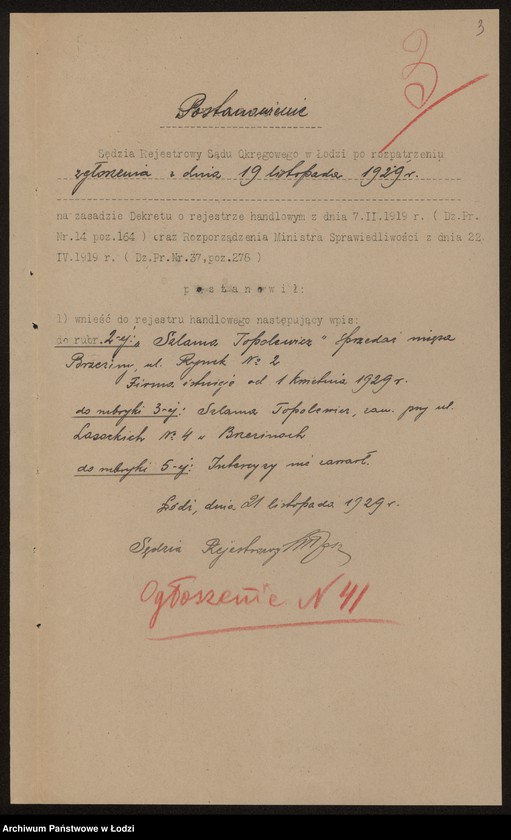 3
3
Postanowienie
Sędzia Rejestrowy Sądu Okręgowego w Łodzi po rozpatrzeniu
zgłoszenia z dnia 19 listopada 1929 r.
na zasadzie Dekretu o rejestrze handlowym z dnia 7.II.1919 r. ( Dz.Pr.
Nr.14 poz.164 ) oraz Rozporządzenia Ministra Sprawiedliwości z dnia 22.
IV.1919 r. ( Dz.Pr.Nr.37,poz.278 )
p o s t a n o w i ł :
1) wnieść do rejestru handlowego następujący wpis:
do rubr. 2-ej: „Szlama Topolewicz" Sprzedaż mięsa
Brzeziny, ul. Rynek № 2
Firma istnieje od 1 kwietnia 1929 r.
do rubryki 3-ej: Szlama Topolewicz, zam. przy ul.
Lasockich № 4 w Brzezinach
do rubryki 5-ej: Intercyzy nie zawarł.
Łódź, dnia 21 listopada 1929 r.
Sędzia Rejestrowy
Ogłoszenie N 41
Archiwum Państwowe w Łodzi